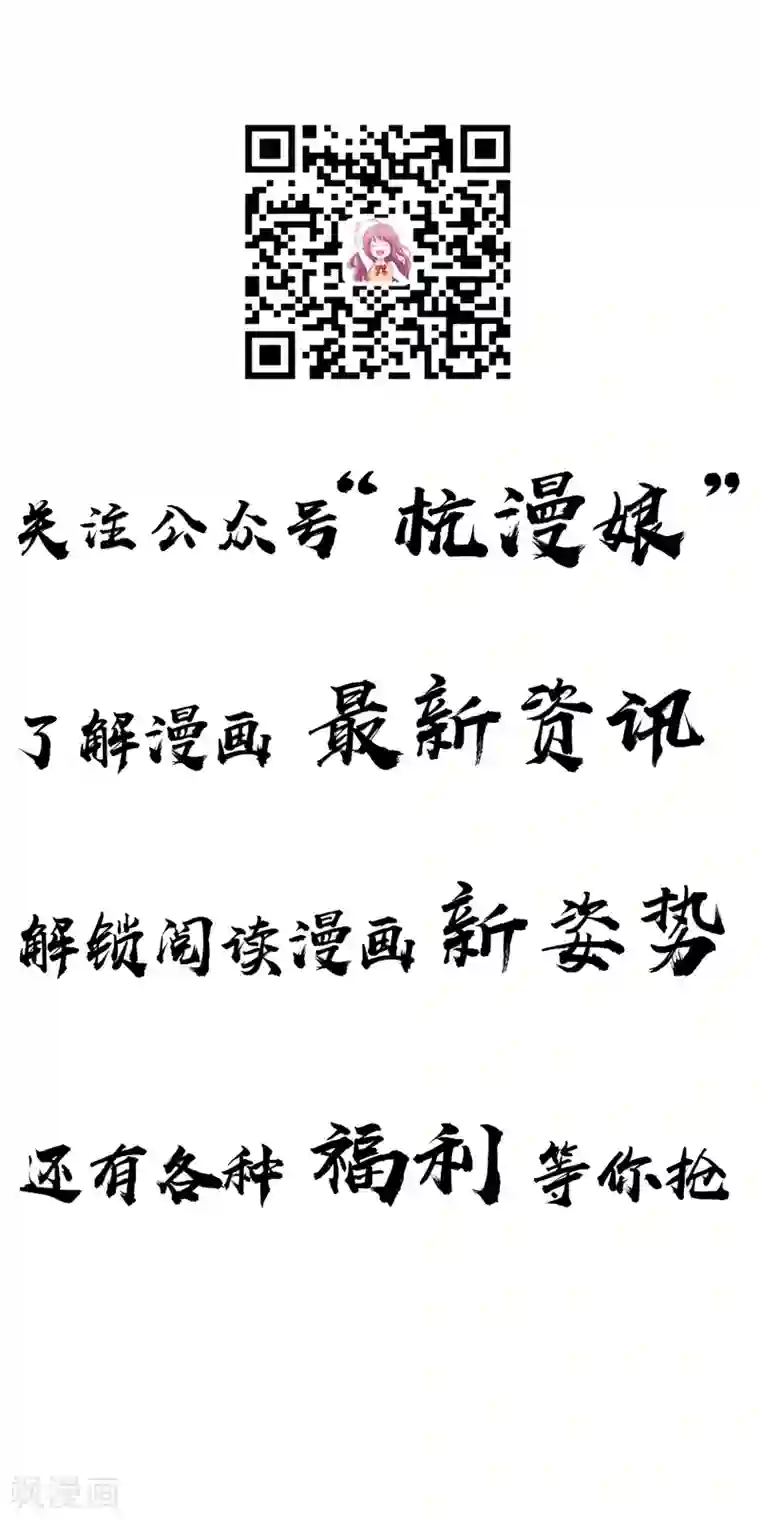 关注公众号“杭漫娘”
了解漫画 最新资讯
解锁阅读漫画 新姿势
还有各种 福利 等你抢
飒漫画